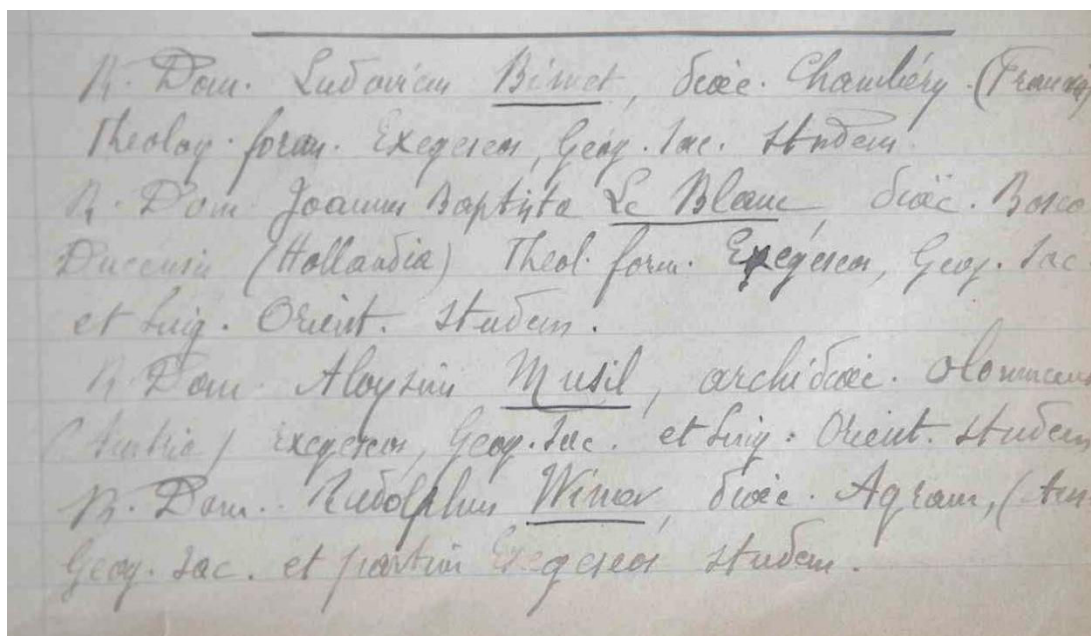 R. Dom. Ludovicus Bimet, dioec. Chambéry. (Francia)
Theolog. form. Exegeseos, Geog. Sac. studens.
R. Dom. Joannes Baptista Le Blanc, dioec. Bosco
Ducensis (Hollandia) Theol. form. Exegeseos, Geog. Sac.
et Ling. Orient. studens.
R. Dom. Aloysius Musil, archidioec. Olomucens
(Austria) Exegeseos, Geog. Sac. et Ling. Orient. studens
R. Dom. Rudolphus Wimer, dioec. Agram, (Aus
Geog. Sac. et partim Exegeseos studens.